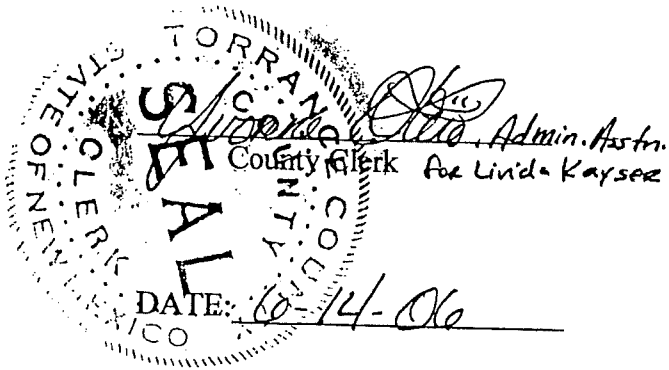 TORRANCE COUNTY
STATE OF NEW MEXICO
COUNTY CLERK
SEAL
Admin. Asstn.
County Clerk for Linda Kayser
DATE: 6-14-06